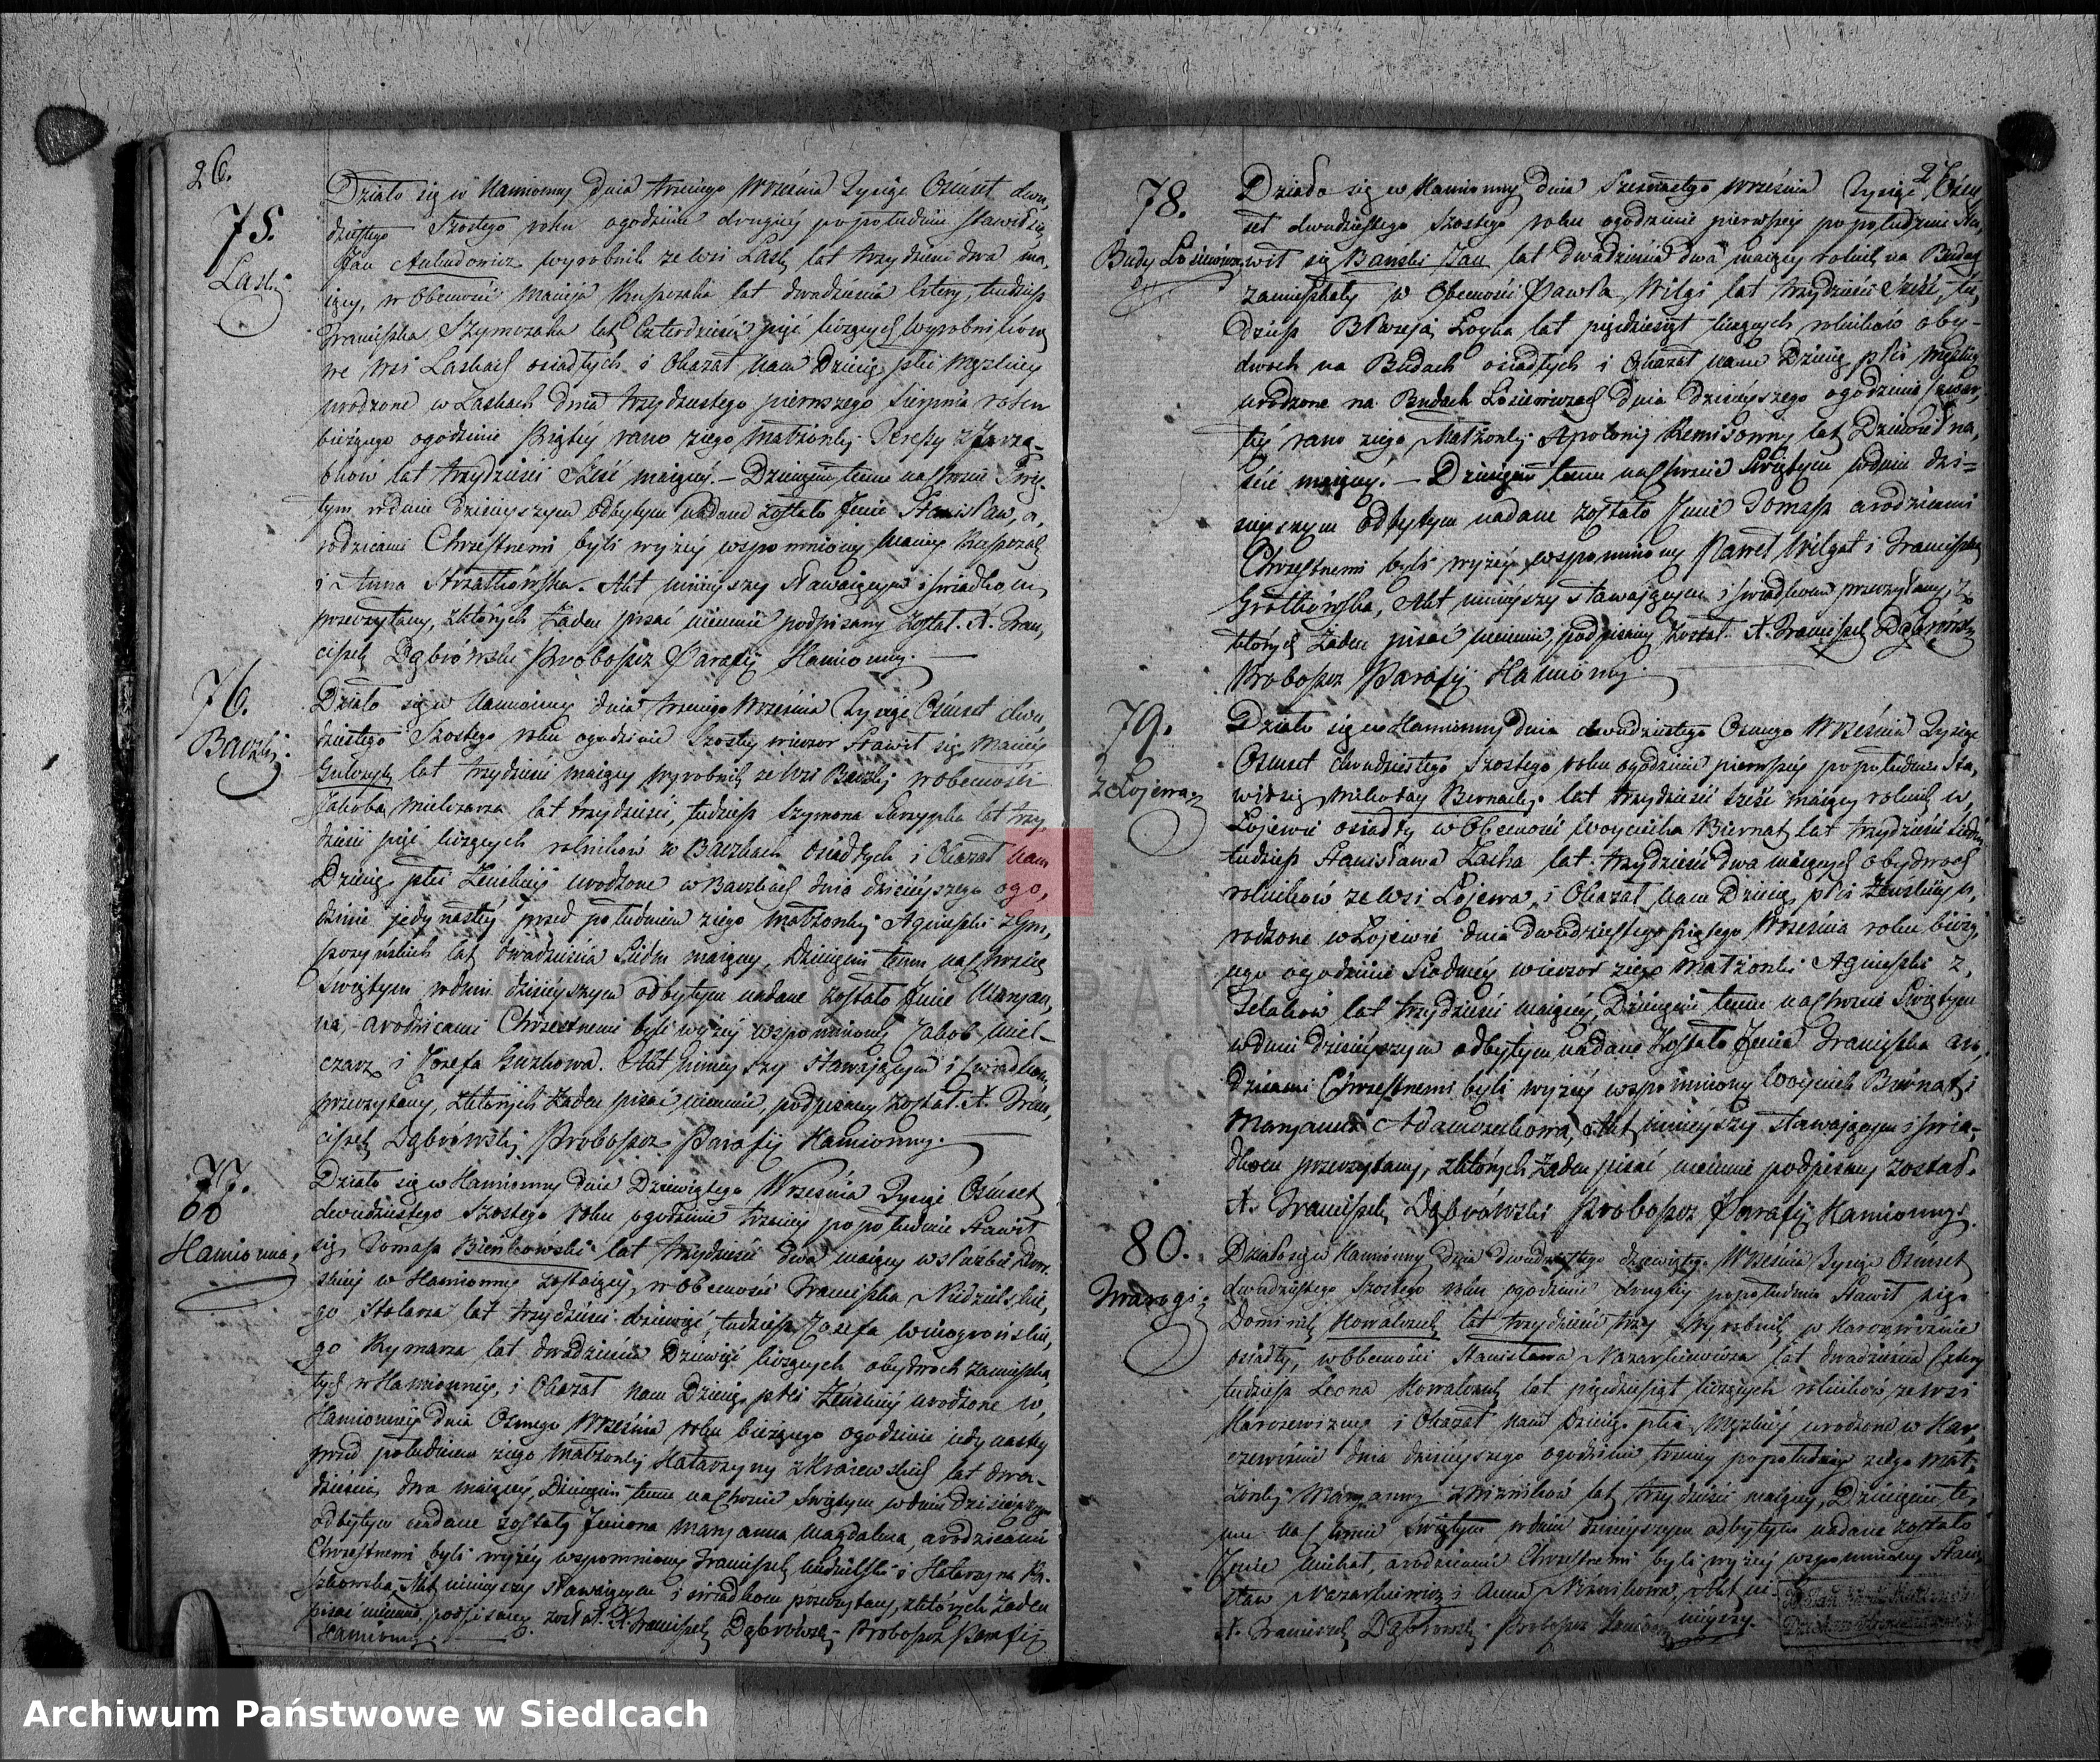 26.
75.
Laski
Działo się w Kamionny dnia trzeciego Września Tysiąc Ośmset dwu,
dziestego Szostego roku ogodzinie drugiey popołudniu stawił się
Jan wyrobnik ze wsi Lask lat trzydzieści dwa ma,
iący, w Obecności Macieja lat dwadzieścia Cztery, tudziesz
Franciszka Szymczaka lat Czterdzieści pięć liczących wyrobników
we wsi Laskach osiadłych i Okazał nam Dziecię płci męzkiey
urodzone w Laskach dnia trzydziestego pierwszego Sierpnia roku
bieżącego ogodzinie Piątey rano z iego Małżonki Teressy z
lat trzydzieści Sześć maiący. – Dziecięciu temu na Chrzcie Swię,
tym w dniu dzisieyszym odbytym nadane zostało Jmie Stanisław, a,
rodzicami Chrzestnemi byli wyżey wspomniony Maciey
i Anna Strzałkowska. Akt ninieyszy stawaiącym i świadkom
przeczytany, z których żaden pisać nieumie podpisany został. X. Fran,
ciszek Dąbrówski Proboszcz Parafij Kamionny.
76.
Baczki
Działo się w Kamionny dnia trzeciego Września Tysiąc Ośmset dwu,
dziestego Szostego roku ogodzinie Szostey wieczor Stawił się Maciey
lat trzydzieści maiący wyrobnik ze wsi Baczki w obecności
Jakoba Mielczarza lat trzydzieści, tudziesz Szymona Skrzypka lat trzy,
dzieści pięć liczących rolników w Baczkach osiadłych i Okazał nam
Dziecię płci Żeńskiey urodzone w Baczkach dnia dzisieyszego ogo,
dzinie jedynastey przed południem z iego Małżonki Agnieszki z Gym,
lat dwadzieścia Siedm maiący, Dziecięciu temu na Chrzcie
Świętym w dniu dzisieyszym odbytym nadane zostało Jmie Maryan,
na, a rodzicami Chrzestnemi byli wyżey wspomniony Jakob Miel-
czarz i Jozefa Guzkowa. Akt ninieyszy stawaiącym i świadkom
przeczytany, z których żaden pisać nieumie, podpisany został. X. Fran,
ciszek Dąbrówski Proboszcz Parafij Kamionny.
77.
Kamionna
Działo się w Kamionny dnia Dziewiątego Września Tysiąc Ośmset
dwudziestego Szostego roku ogodzinie trzeciey popołudniu Stawił
się Tomasz Bieńkowski lat trzydzieści dwa maiący w służbie Dwor,
skiey w Kamionney zostaiący, w obecności Franciszka Niedzielskie,
go Stolarza lat trzydzieści dziewięć, tudziesz Jozefa
go Rymarza lat dwadzieścia Dziewięć liczących obydwoch zamieszka,
łych w Kamionney, i Okazał nam Dziecię płci Żeńskiey urodzone w,
Kamionney dnia Osmego Września roku bieżącego ogodzinie iedynastey
przed południem z iego Małżonki Katarzyny z Kraiewskich lat dwa-
dzieścia dwa maiącey, Dziecięciu temu na Chrzcie Świętym, w dniu dzisieyszym
odbytym nadane zostały Jmiona Maryanna Magdalena, a rodzicami
Chrzestnemi byli wyżey wspomniony Franciszek Niedzielski i Katarzyna
Akt ninieyszy stawaiącym i świadkom przeczytany, z których żaden
pisać nieumie, podpisany został. X. Franciszek Dąbrówski Proboszcz Parafij
Kamionny.
27
78.
Budy Łosiewicze
Działo się w Kamionny dnia Szesnastego września Tysiąc Ośm
set dwudziestego Szostego roku ogodzinie pierwszey popołudniu Sta,
wił się Bański Jan lat dwadzieścia dwa maiący rolnik na Budach
zamieszkały w Obecności Pawła Wilgi lat trzydzieści Sześć, tu,
dziesz Błażeja Łoyka lat pięćdziesiąt liczących rolników oby-
dwoch na Budach osiadłych i Okazał nam Dziecię płci męzkiey
urodzone na Budach Łosiewiczach dnia Dzisieyszego ogodzinie Czwar,
tey rano z iego Małżonki Apolonij lat Dziewięt na,
ście maiącey. – Dziecięciu temu na Chrzcie Świętym w dniu dzi=
sieyszym odbytym nadane zostało Jmie Tomasz a rodzicami
Chrzestnemi byli wyżey wspomniony Paweł Wilgat i Franciszka
Grotkówska, Akt ninieyszy stawaiącym i świadkom przeczytany, z
których żaden pisać nieumie, podpisany został. X. Franciszek Dąbrówski
Proboszcz Parafij Kamionny.
79.
z Łojewa
Działo się w Kamionny dnia dwudziestego Osmego Września Tysiąc
Osmset dwudziestego Szostego roku ogodzinie pierwszey popołudniu Sta,
wił się Mikołay lat trzydzieści sześć maiący rolnik w,
Łojewie osiadły w Obecności Woyciecha Biernat lat trzydzieści siedm
tudziesz Stanisława Laska lat trzydzieści dwa maiących obydwoch
rolników ze wsi Łojewa, i Okazał nam Dziecię płci Żeńskiey u,
rodzone w Łojewie dnia Dwudziestego piątego Września roku bieżą,
cego ogodzinie Siodmey wieczor z iego Małżonki Agnieszki z,
lat trzydzieści maiącey, Dziecięciu temu na Chrzcie Świętym
w dniu dzisieyszym odbytym nadane zostało Jmie Franciszka a ro,
dzicami Chrzestnemi byli wyżey wspomniony Woyciech Biernat i
Maryanna Adamczukowa, Akt ninieyszy stawaiącym i świa-
dkom przeczytany, z których żaden pisać nieumie podpisany został.
X. Franciszek Dąbrówski Proboszcz Parafij Kamionny.
80.
Działo się w Kamionny dnia dwudziestego dziewiątego Września Tysiąc Osmset
dwudziestego Szostego roku ogodzinie drugiey popołudniu Stawił się
Dominik Kowalczuk lat trzydzieści trzy wyrobnik w
osiadły, w Obecności Stanisława Nazarkiewicza lat dwadzieścia Cztery
tudziesz Leona Kowalczuk lat pięćdziesiąt liczących rolników ze wsi
i Okazał nam Dziecię płci Męzkiey urodzone w Kar,
czewiźnie dnia dzisieyszego ogodzinie trzeciey popołudniu z iego Mał,
żonki Maryanny lat trzydzieści maiącey, Dziecięciu te,
mu na Chrzcie Świętym w dniu dzisieyszym odbytym nadane zostało
Jmie Michał, a rodzicami Chrzestnemi byli wyżey wspomniony Stani,
sław Nazarkiewicz i Anna Akt ni-
nieyszy.
X. Franciszek Dąbrowski Proboszcz Kamionny
Archiwum Państwowe w Siedlcach